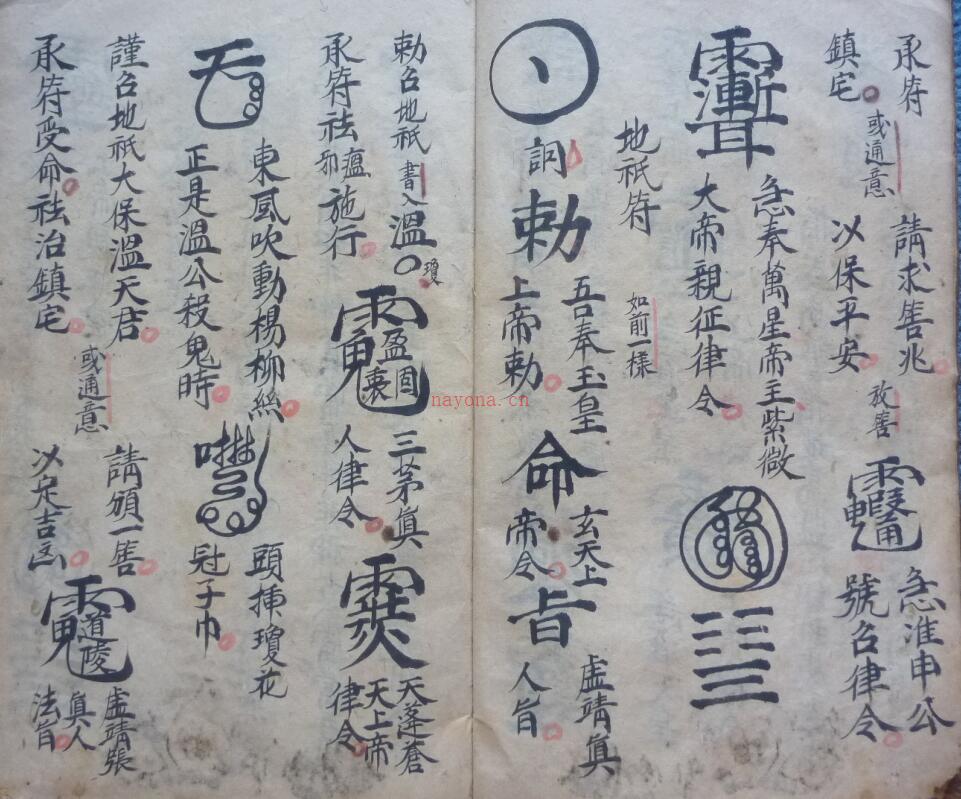 承符
鎮宅
或通意
請求善兆
以保平安
放善
急准申公
號召律令
急奉萬星帝主紫微
大帝親征律令
地祇符
如前一樣
詞
勅
吾奉玉皇
上帝勅
命
玄天上
帝令
旨
虛靖真
人旨
勅召地祇書入溫〇瓊
承符祛瘟邪施行
三茅真
人律令
天蓬蒼
天上帝
律令
東風吹動楊柳絲
正是溫公殺鬼時
頭插瓊花
冠子巾
謹召地祇大保溫天君
承符受命祛治鎮宅
或通意
請頒一筶
以定吉凶
道陵
虛靖張
真人
法旨
nayona.cn